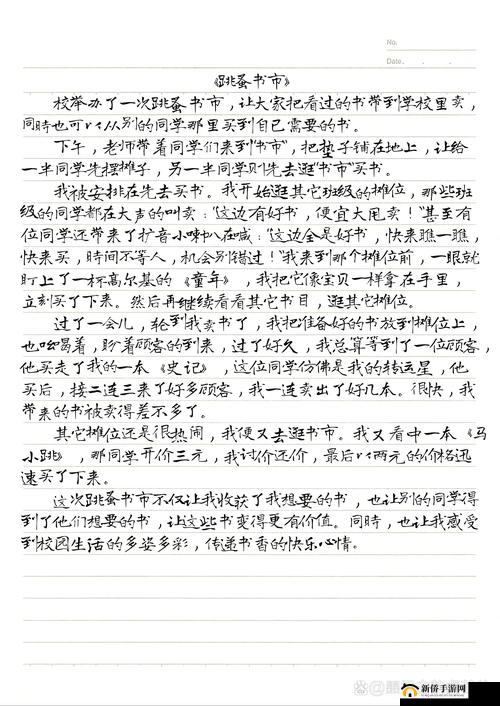 No.
Date.
《跳蚤书市》
校举办了一次跳蚤书市，让大家把看过的书带到学校里卖，
同时也可以从别的同学那里买到自己需要的书。
下午，老师带着同学们来到"书市"，把垫子铺在地上，让给
一半同学先摆摊子，另一半同学则先去逛"书市"买书。
我被安排在先去买书。我开始逛其它班级的摊位，那些班
级的同学都在大声的叫卖："这边有好书，便宜大甩卖！"甚至有
位同学还带来了扩音小喇叭在喊："这边全是好书，快来瞧一瞧，
快来买，时间不等人，机会别错过！"我来到那个摊位前，一眼就
盯上了一杯高尔基的《童年》，我把它像宝贝一样拿在手里，
立刻买了下来。然后再继续看看其它书目，逛其它摊位。
过了一会儿，轮到我卖书了，我把准备好的书放到摊位上，
也吆喝着，盼着顾客的到来，过了好久，我总算等到了一位顾客，
他买走了我的一本《史记》，这位同学仿佛是我的转运星，他
买后，接二连三来了好多顾客，我一连卖出了好几本。很快，我
带来的书被卖得差不多了。
其它摊位还是很热闹，我便又去逛书市。我又看中一本《马
小跳》，那同学开价三元，我讨价还价，最后以两元的价格迅
速买了下来。
这次跳蚤书市不仅让我收获了我想要的书，也让别的同学得
到了他们想要的书，让这些书变得更有价值。同时，也让我感受
到校园生活的多姿多彩，传递书香的快乐心情。
新侨手游网